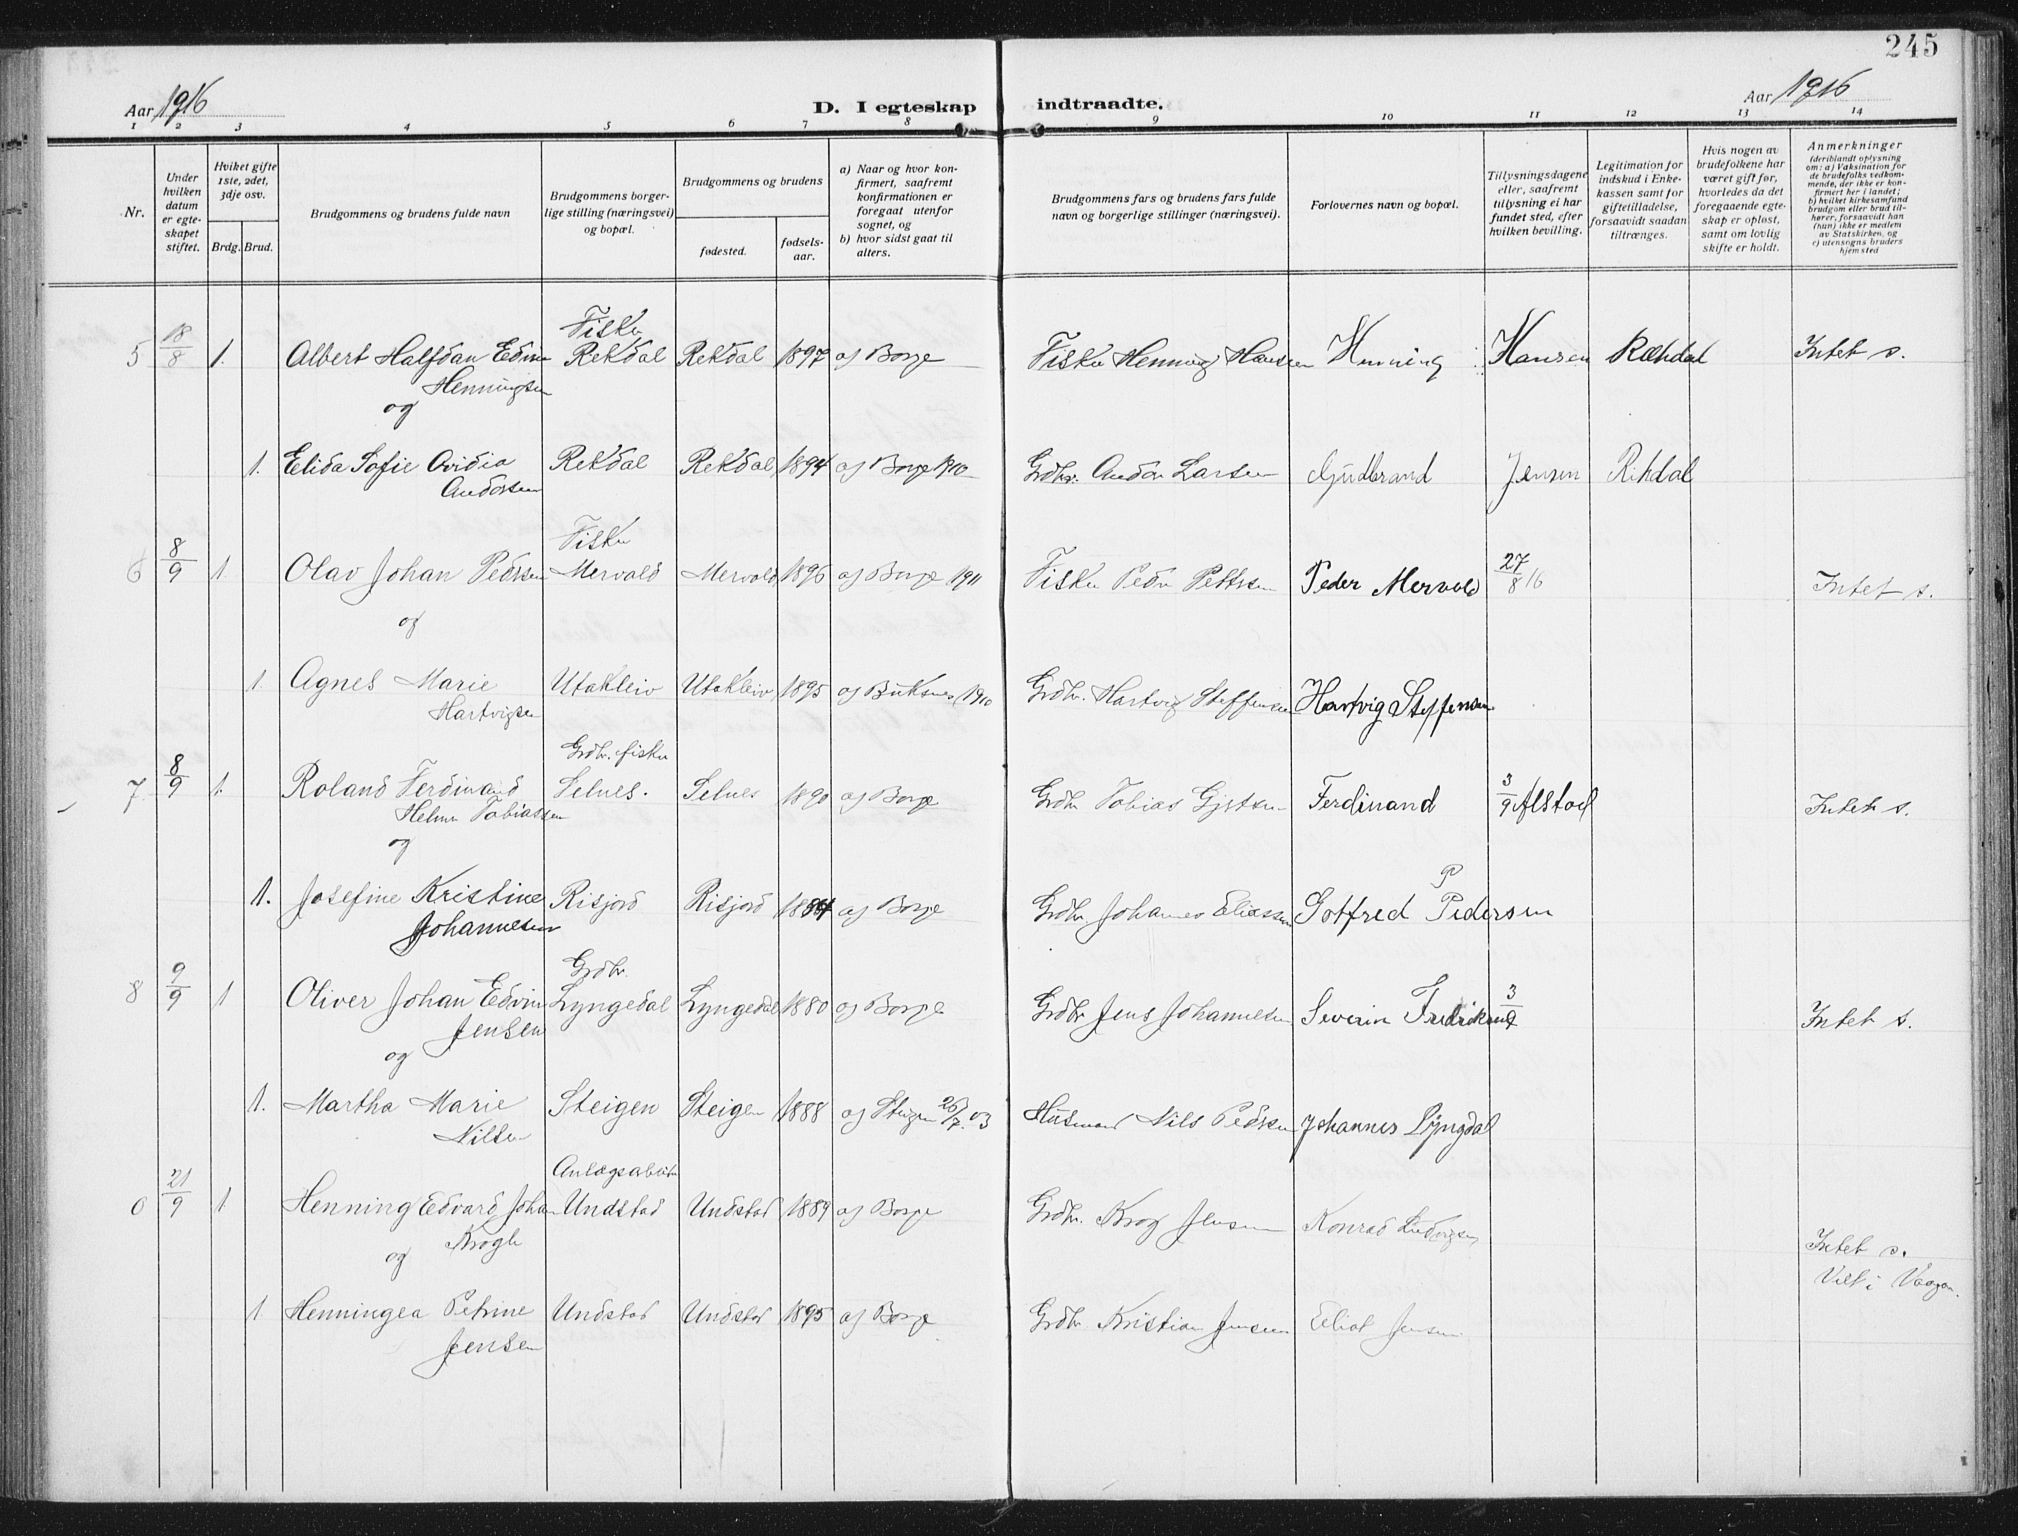 245
Aar 1916
D. I egteskap indtraadte.
Aar 1916
1 2 3 4 5 6 7 8 9 10 11 12 13 14
Nr.
Under hvilken datum er egteskapet stiftet.
Hviket gifte 1ste, 2det, 3dje osv.
Brdg. Brud.
Brudgommens og brudens fulde navn
Brudgommens borgerlige stilling (næringsvei) og bopæl.
Brudgommens og brudens
fødested.
fødselsaar.
a) Naar og hvor konfirmert, saafremt konfirmationen er foregaat utenfor sognet, og
b) hvor sidst gaat til alters.
Brudgommens fars og brudens fars fulde navn og borgerlige stillinger (næringsvei).
Forlovernes navn og bopæl.
Tillysningsdagene eller, saafremt tillysning ei har fundet sted, efter hvilken bevilling.
Legitimation for indskud i Enkekassen samt for giftetilladelse, forsaavidt saadan tiltrænges.
Hvis nogen av brudefolkene har været gift før, hvorledes da det foregaaende egteskap er opløst, samt om lovlig skifte er holdt.
Anmerkninger
(deriblandt oplysning om: a) Vaksination for de brudefolks vedkommende, der ikke er konfirmert her i landet; b) hvilket kirkesamfund brudgom eller brud tilhører, forsaavidt han (hun) ikke er medlem av Statskirken, og c) utensogns bruders hjemsted
Fisker
5 18/8 1. Albert Halfdan Edvin Rekdal Rekdal 1897 og Borge Fisker Henning Hansen Henning Hansen Rekdal Intet s.
Henningsen
og
1. Elida Sofie Ovidia Rekdal Rekdal 1894 og Borge 1910 Grdbr. Andor Larsen Gudbrand Jensen Rekdal
Andorsen
Fisker
6 8/9 1. Olav Johan Pedersen Mervold Mervold 1896 og Borge 1911 Fisker Peder Pettersen Peder Mervold 27/8 16 Intet s.
og
1. Agnes Marie Utakleiv Utakleiv 1895 og Buksnes 1910 Grdbr. Hartvig Steffensen Hartvig Steffensen
Hartvigsen
Grdbr. fisker
7 8/9 1. Roland Ferdinand Selnes. Selnes 1890 og Borge Grdbr Tobias Ferdinand 3/9 Alstad Intet s.
Helmer Tobiassen
og
1. Josefine Kristine Risjord Risjord og Borge Grdbr Johannes Eliassen Gotfred Pedersen
Johannesen
Grdbr.
8 9/9 1 Oliver Johan Edvin Lyngedal Lyngedal 1880 og Borge Grdbr Jens Johannesen Severin Fredriksen 3/9 Intet s.
Jensen
og
1. Martha Marie Steigen Steigen 1888 og Steigen 26/7 03 Husmand Nils Pedersen Johannes Lyngdal
Nilsen
Anlægsarbeider
21/9 1 Henning Edvard Johan Undstad Undstad 1889 og Borge Grdbr. Krog Jensen Konrad Ludvigsen
Krogh
og
Intet s.
Viet i Vaagan.
1 Henningea Petrine Undstad Undstad 1895 og Borge Grdbr Kristian Jensen Eliot Jensen
Jensen